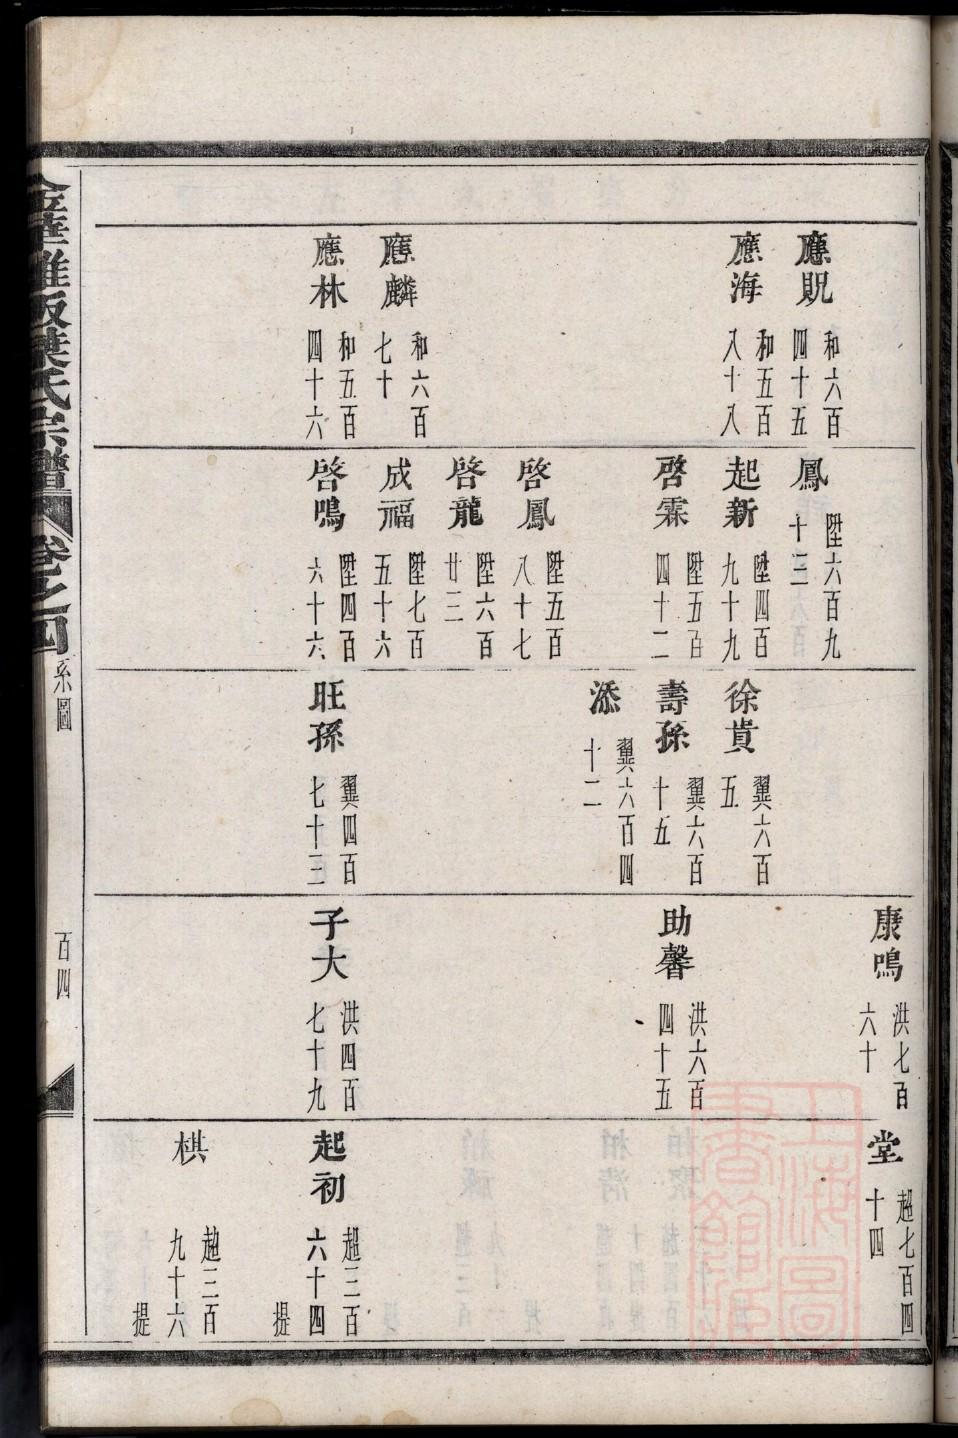 應貺 和六百四十五
應海 和五百八十八
應麟 和六百七十
應林 和五百四十六
鳳 陞六百九十三
起新 陞四百九十九
啓霖 陞五百四十二
啓鳳 陞五百八十七
啓龍 陞六百廿三
成福 陞七百五十六
啓鳴 陞四百六十六
徐貴 翼六百五
壽孫 翼六百十五
添 翼六百四十二
旺孫 翼四百七十三
康鳴 洪七百六十
助馨 洪六百四十五
子大 洪四百七十九
堂 趙七百四十四
起初 趙三百六十四 提
棋 趙三百九十六 提
金華 阪葉氏宗譜 卷之四 系圖 百四
上海圖書館藏